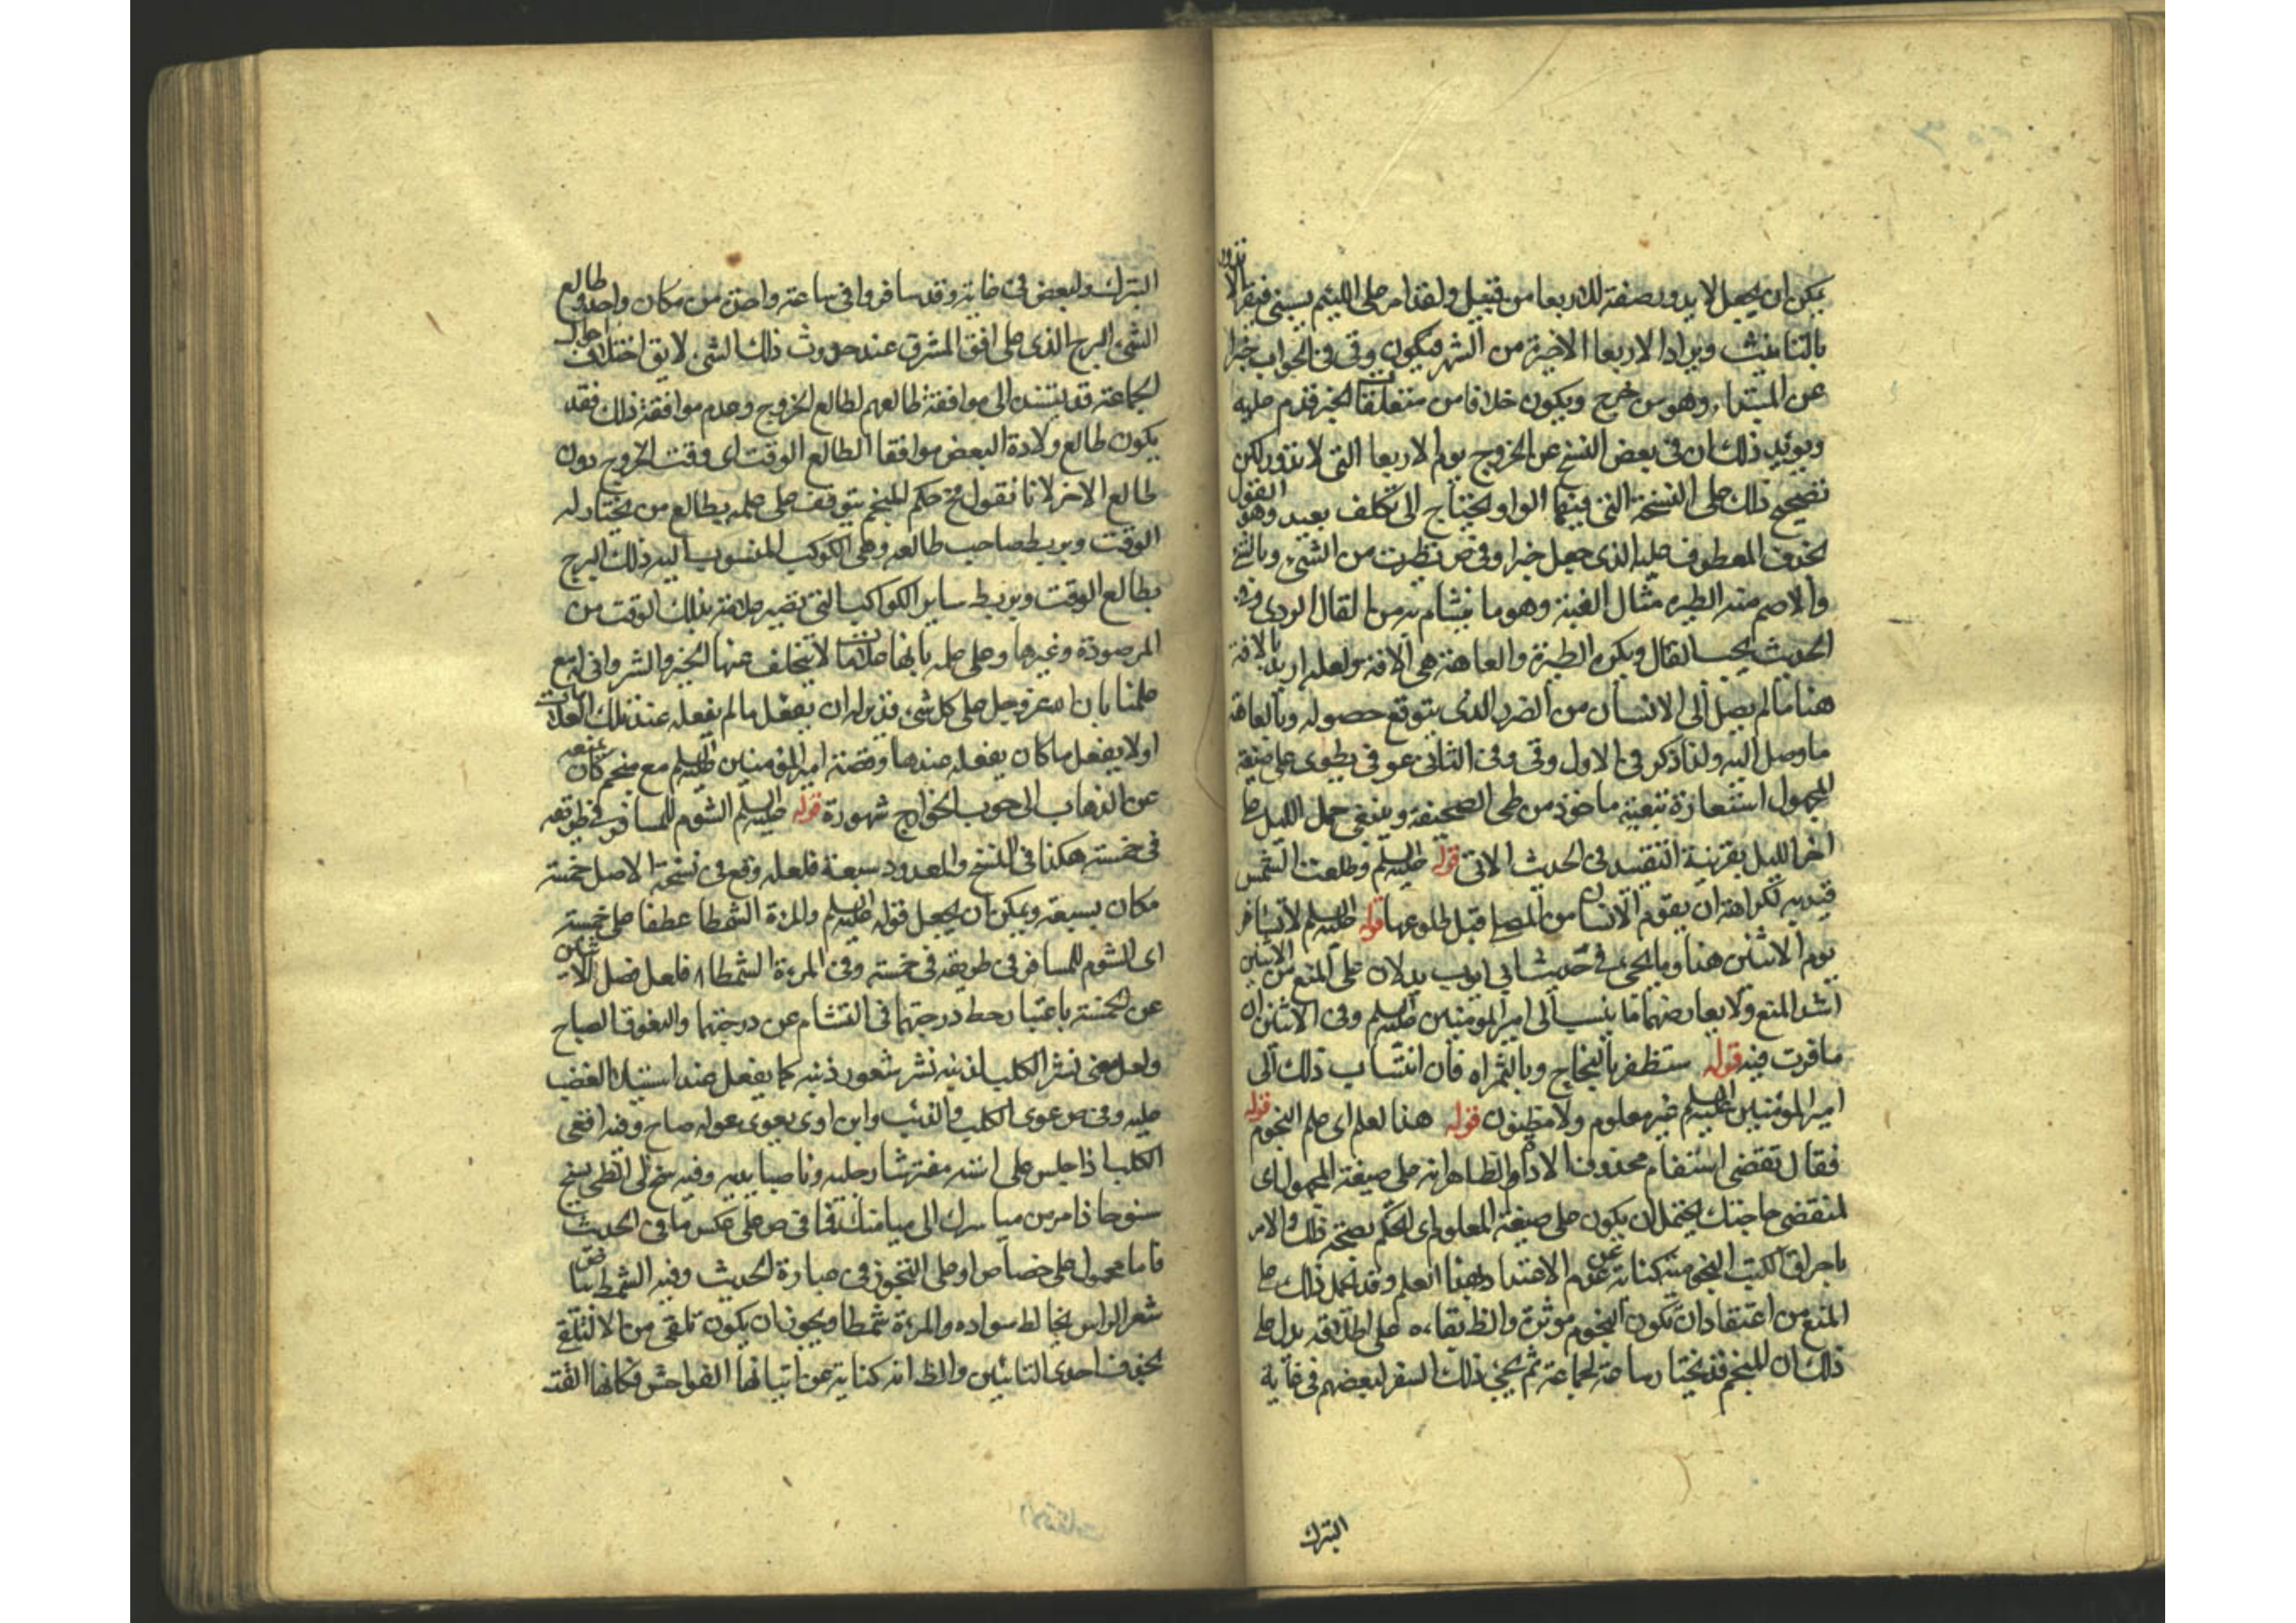 يمكن ان يجعل لا يدور صفة للاربعا من قبيل ولقد امر على اللئيم يسبني فيقرا لا تدور
بالتانيث ويراد الاربعا الاخيرة من الشهر فيكون وقي في الجواب خبرا
عن المبتدا وهو من خرج ويكون خلافا من متعلقات الخبر قدم عليه
ويويد ذلك ان في بعض النسخ عن الخروج يوم الاربعا التي لا تدور لكن
تصحيح ذلك على النسخة التي فيها الواو يحتاج الى تكلف بعيد وهو القول
بحذف المعطوف عليه الذي جعل خبرا وفي ص تطيرت من الشيء وبالشيء
والاسم منه الطيره مثال العنبة وهو ما يتشام به من الفال الردي وفي
الحديث يحب الفال ويكره الطيرة والعاهة هي الافة ولعله اريد بالافة
هنا ما لم يصل الى الانسان من الضرر الذي يتوقع حصوله وبالعاهة
ما وصل اليه ولذا ذكر في الاول وقي وفي الثاني عوفي يطوى على صيغة
المجهول استعارة تبعية ماخوذ من طي الصحيفة وينبغي حمل الليل على
اخر الليل بقرينة التقييد في الحديث الاتي قوله عليه السلم وطلعت الشمس
قيد به لكراهة ان يقوم الانسان من المصلى قبل طلوعها قوله عليه السلم لا تسافر
يوم الاثنين هذا وما يجيء في حديث ابي ايوب يدلان على المنع من الاثنين
اشد المنع ولا يعارضهما ما ينسب الى امير المومنين عليه السلم وفي الاثنين ان
سافرت فيه قوله ستظفر بالنجاح وبالثراه فان انتساب ذلك الى
امير المومنين عليه السلم غير معلوم ولا مظنون قوله هذا لعلم اي علم النجوم قوله
فقال تقضى استفهام محذوف الاداة والظاهر انه على صيغة المجهول اي
لتقضى حاجتك يحتمل ان يكون على صيغة المعلوم اي الحكم بصحة ذلك والامر
باحراق الكتب النجومية كناية عن عدم الاعتداد بهذا العلم وقد يحمل ذلك على
المنع من اعتقاد ان تكون النجوم موثرة والظ بقاءه على اطلاقه يدل على
ذلك ان المنجم قد يختار ساعة لجماعة ثم يجيء ذلك السفر لبعضهم في غاية
البترك
البترك ولبعض في غاية وقد سافروا في ساعة واحدة من مكان واحد وطالع
الشيء البرج الذي على افق المشرق عند حدوث ذلك الشيء لا يق اختلاف احوال
الجماعة قد يستند الى موافقة طالعهم لطالع الخروج وعدم موافقة ذلك فقد
يكون طالع ولادة البعض موافقا الطالع الوقت اي وقت الخروج دون
طالع الاخر لانا نقول مح حكم المنجم يتوقف على علمه بطالع من يختار له
الوقت وبربط صاحب طالعه وهي الكوكب المنسوب اليه ذلك البرج
بطالع الوقت وبربط ساير الكواكب التي تصير علامة بذلك الوقت من
المرصودة وغيرها وعلى علمه بانها علامات لا يتخلف عنها الخير والشر واني له مع
علمنا بان الله عز وجل على كل شيء قدير له ان يفعل ما لم يفعله عند تلك العلامات
او لا يفعل ما كان يفعله عندها وقصة امير المؤمنين عليه السلم مع منجم كان يمنعه
عن الذهاب الى حرب الخوارج شهورة قوله عليه السلم الشوم للمسافر في طريقه
في خمسة هكذا في النسخ والمعدود سبعة فلعله وقع في نسخة الاصل خمسة
مكان بسبعة ويمكن ان يجعل قوله عليه السلم والمرءة الشمطا عطفا على خمسة
اي الشوم للمسافر في طريقه في خمسة وفي المرءة الشمطاء فلعل فصل الاثنين
عن الخمسة باعتبار حط درجتهما في التشام عن درجتها والبغوقا الصباح
ولعل معنى نشر الكلب اذنيه نشر شعور ذنبه كما يفعل عند استيلاء الغضب
عليه وفي ص عوى الكلب والذئب وابن اوى يعوي عوله صاح وفيه اقعى
الكلب اذا جلس على استه مفترشا رجليه وناصبا يديه وفيه سنح لي الظبي يسنح
سنوحا اذا مر من مياسرك الى ميامنك فما في ص على عكس ما في الحديث
فاما محمول على خصاص او على التجوز في عبارة الحديث وفيه الشمط بياض
شعر الراس يخالط سواده والمرءة شمطا ويجوز ان يكون تلقى من الا لتلقى
بحذف احدى التائين والظ انه كناية عن اتيانها الفواحش فكانها القت